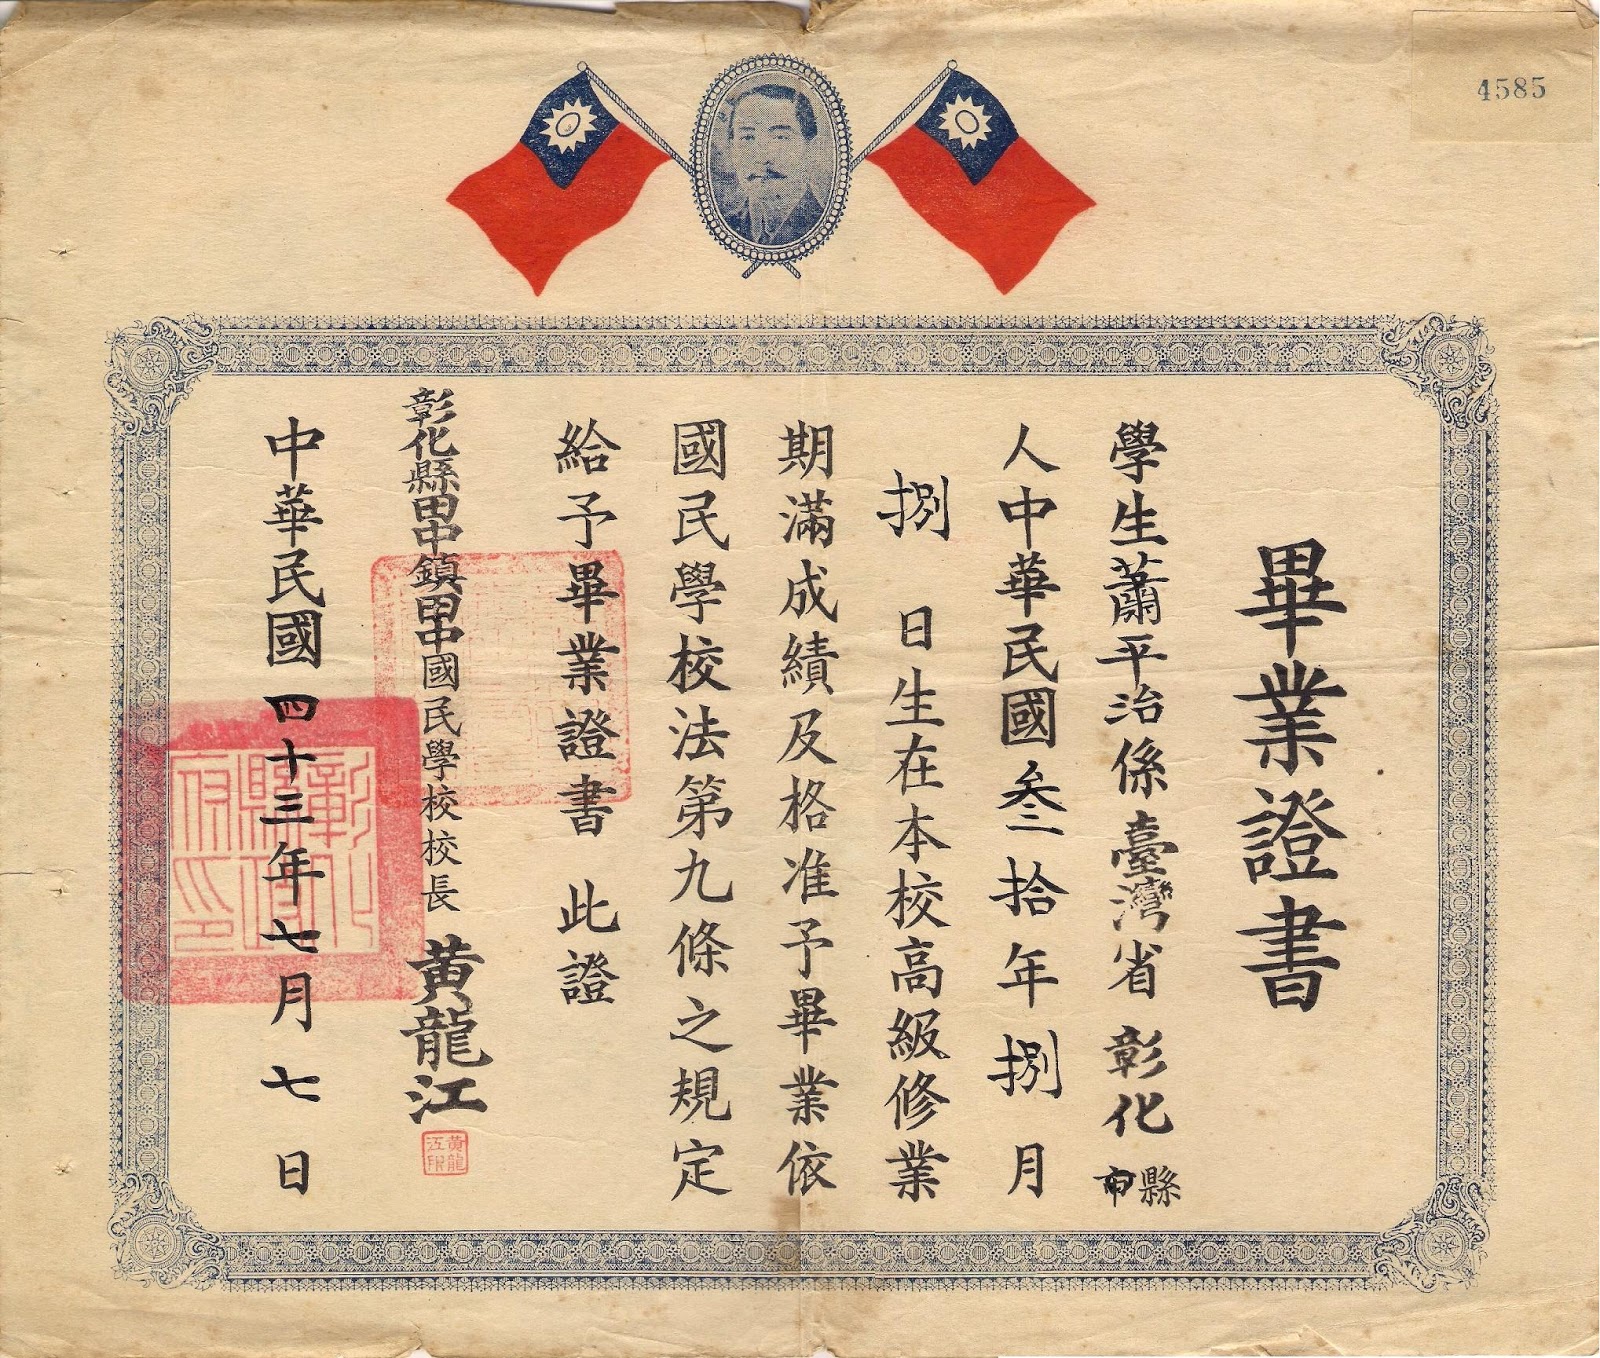 4585
畢業證書
學生蕭平治係臺灣省彰化縣市
人中華民國叁拾年捌月
捌日生在本校高級修業
期滿成績及格准予畢業依
國民學校法第九條之規定
給予畢業證書此證
彰化縣田中鎮田中國民學校校長黃龍江
黃龍江印
中華民國四十三年七月七日
彰化縣政府印